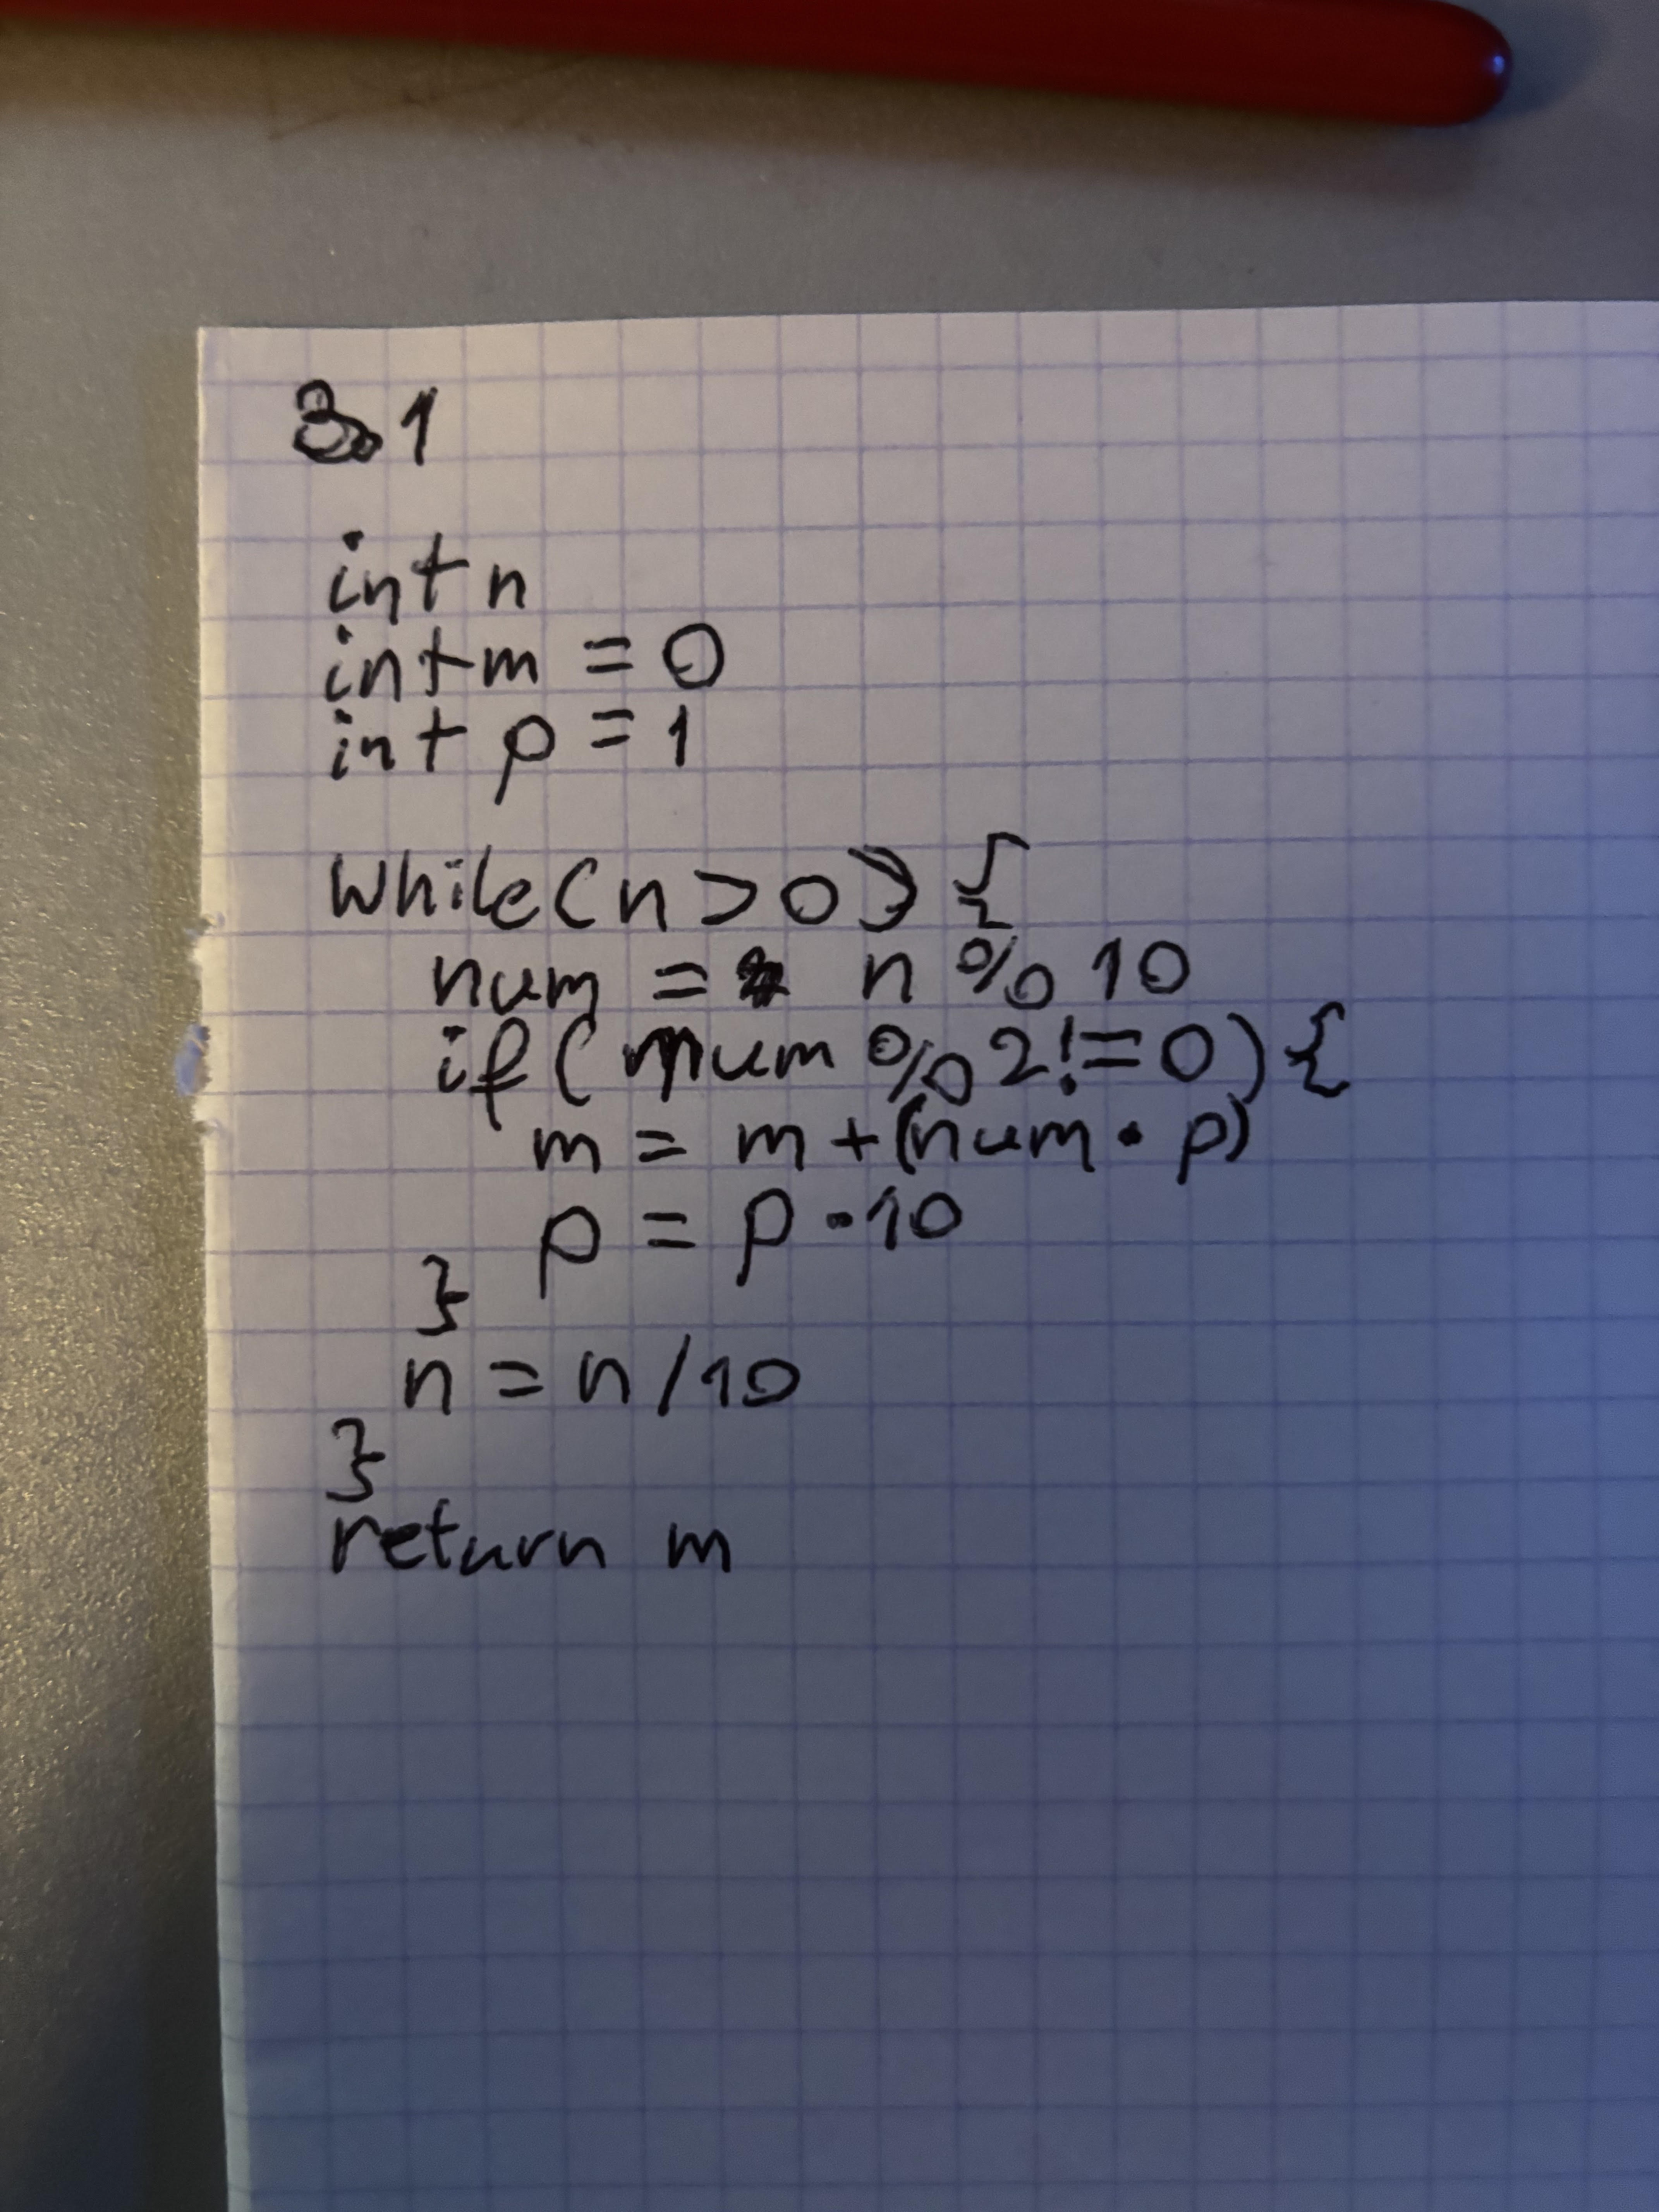 3.1
int n
int m = 0
int p = 1
while(n>0){
num = n%10
if(num%2!=0){
m = m+(num·p)
p = p·10
}
n = n/10
}
return m